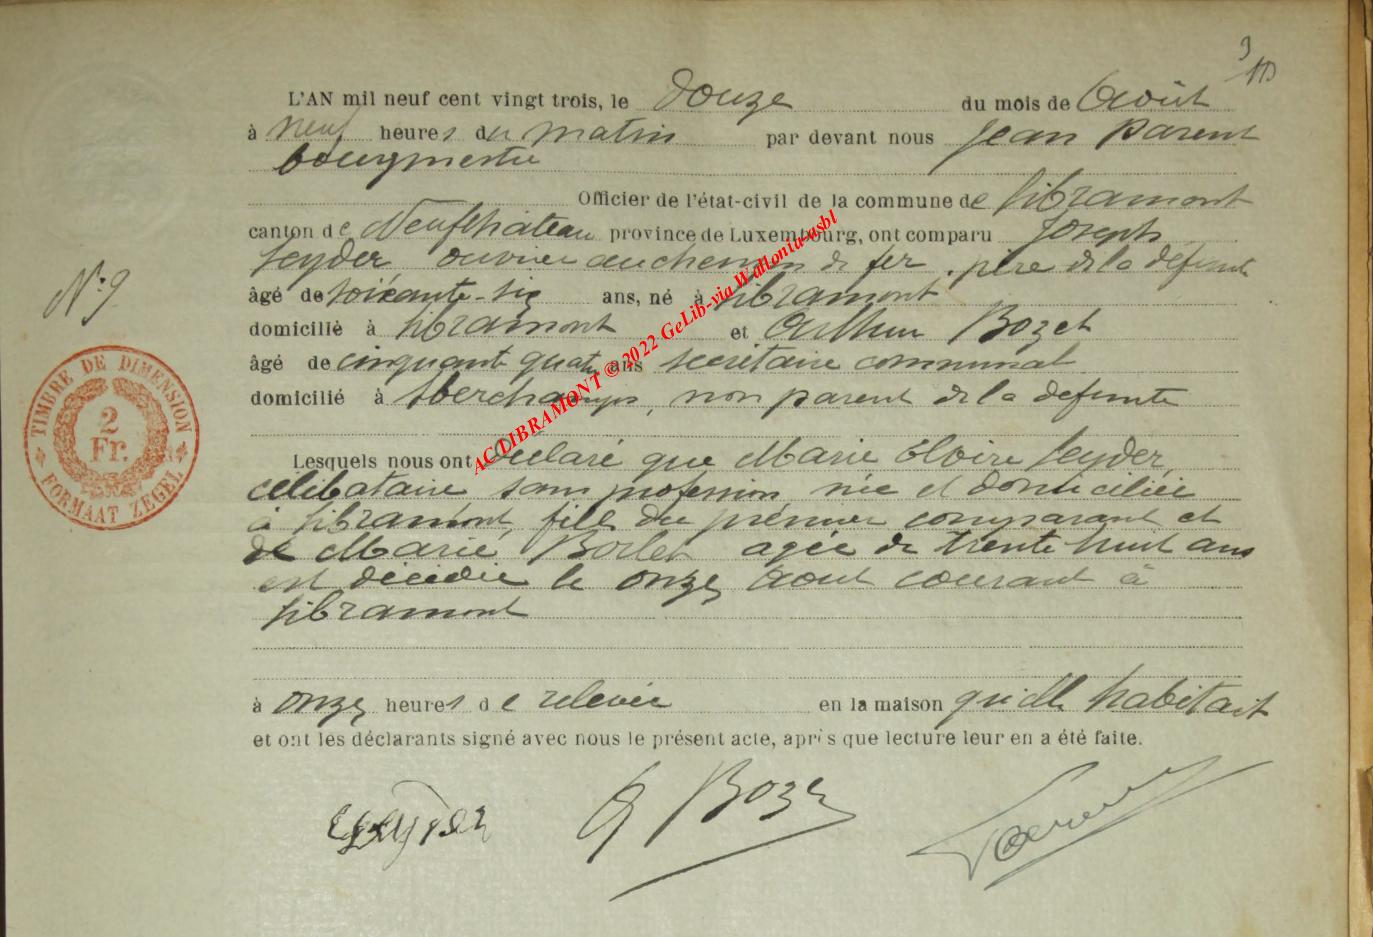 L'AN mil neuf cent vingt trois, le douze du mois de Août
à neuf heures du matin par devant nous Jean Parent
bourgmestre
Officier de l'état-civil de la commune de Libramont
canton de Neufchâteau province de Luxembourg, ont comparu Joseph
Leyder ouvrier au chemin de fer, père de la défunte
âgé de soixante-six ans, né à Libramont
domicilié à Libramont et Arthur Bozet
âgé de cinquante quatre ans secrétaire communal
domicilié à Sberchamps, non parent de la defunte
Lesquels nous ont déclaré que Marie Elvire Leyder,
célibataire sans profession née et domiciliée
à Libramont, fille du premier comparant et
de Marie Borlet agée de trente huit ans
est décédée le onze Août courant à
Libramont
à onze heures de relevée en la maison qu'elle habitait
et ont les déclarants signé avec nous le présent acte, après que lecture leur en a été faite.
Leyder A Bozet Parent
N° 9
TIMBRE DE DIMENSION
2
Fr.
FORMAAT ZEGEL
ACLIBRAMONT © 2022 GeLib-via Wallonia-asbl